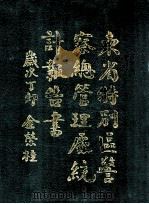 東省特別區警
察總管理處統
計報告書
歲次丁卯 金榮桂